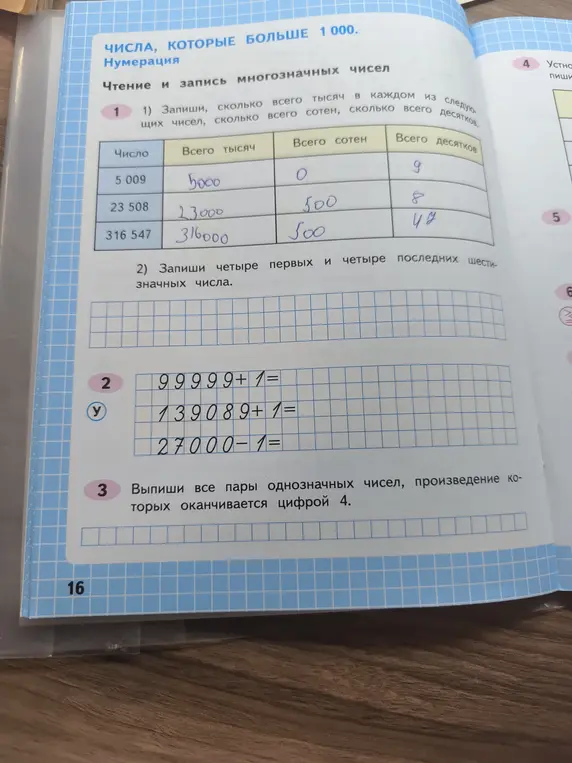 ЧИСЛА, КОТОРЫЕ БОЛЬШЕ 1 000.
Нумерация
Чтение и запись многозначных чисел
1 1) Запиши, сколько всего тысяч в каждом из следую-
щих чисел, сколько всего сотен, сколько всего десятков.
Число Всего тысяч Всего сотен Всего десятков
5 009 5000 0 9
23 508 23000 500 8
316 547 316000 500 47
2) Запиши четыре первых и четыре последних шести-
значных числа.
2 99999+1=
У 139089+1=
27000-1=
3 Выпиши все пары однозначных чисел, произведение ко-
торых оканчивается цифрой 4.
16
4 Устно
пиши
5
6